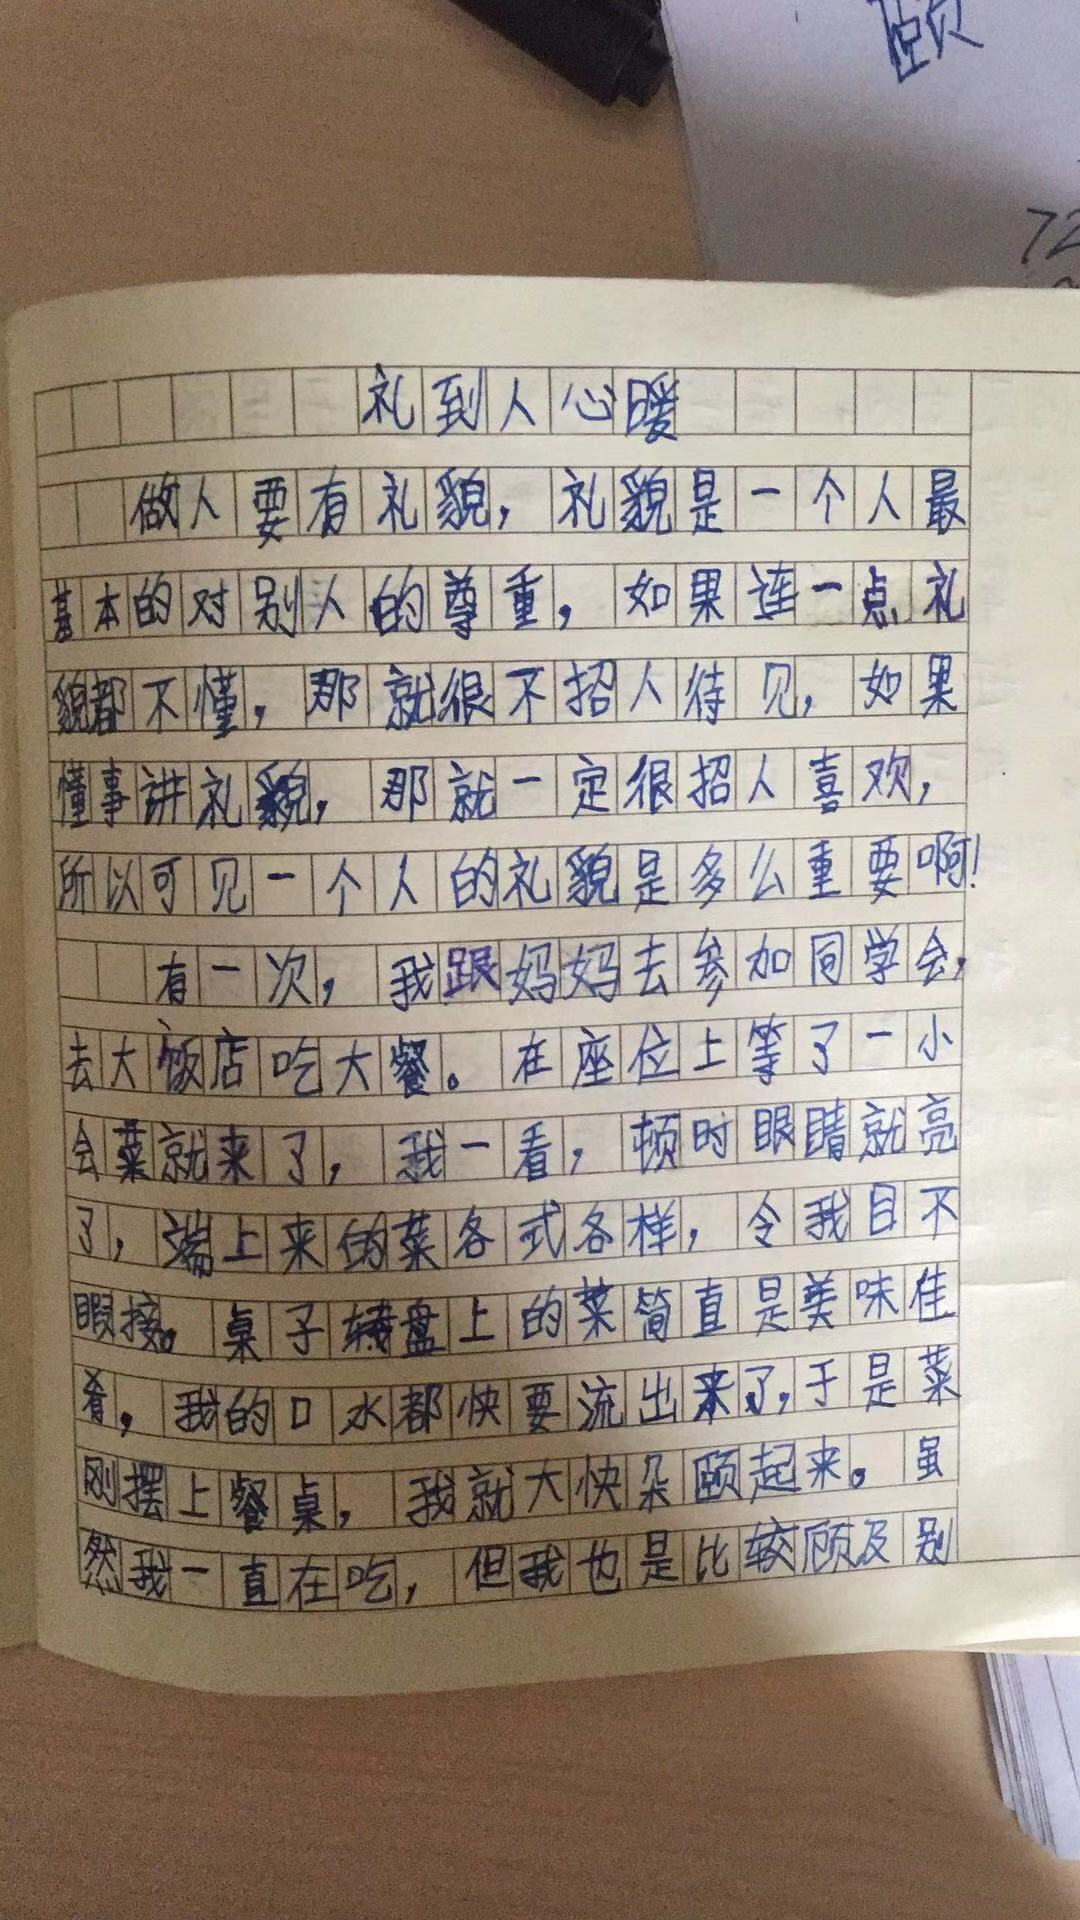 颐
72
礼到人心暖
做人要有礼貌，礼貌是一个人最
基本的对别人的尊重，如果连一点礼
貌都不懂，那就很不招人待见，如果
懂事讲礼貌，那就一定很招人喜欢，
所以可见一个人的礼貌是多么重要啊！
有一次，我跟妈妈去参加同学会，
去大饭店吃大餐。在座位上等了一小
会菜就来了，我一看，顿时眼睛就亮
了，端上来的菜各式各样，令我目不
暇接。桌子转盘上的菜简直是美味佳
肴，我的口水都快要流出来了，于是菜
刚摆上餐桌，我就大快朵颐起来。虽
然我一直在吃，但我也是比较顾及别